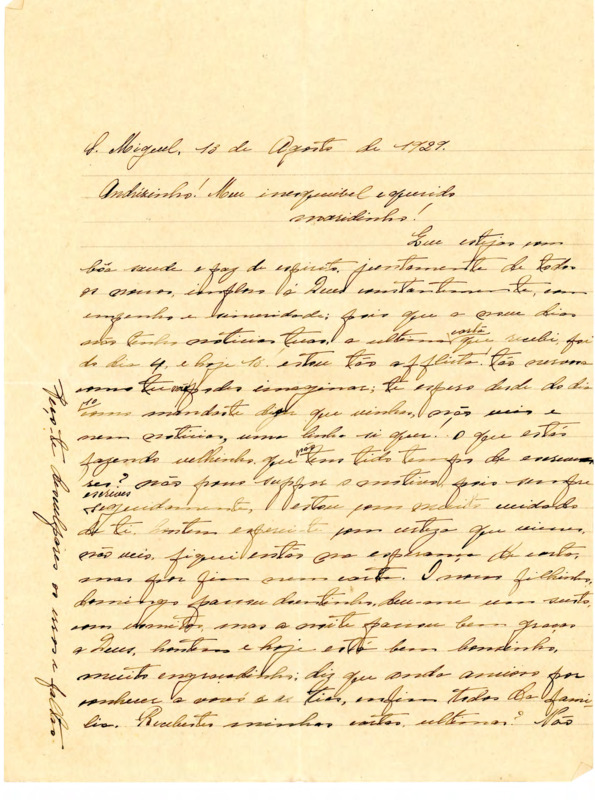 S. Miguel, 13 de Agosto de 1929.
Andrézinho! Meu inesquecivel e querido
maridinho!
Que estejas com
bôa saude e paz de espirito, juntamente de todos
os nossos, imploro á Deus constantemente, com
empenho e sinceridade; pois que a nove dias
não tenho noticias tuas, a ultima carta que recebi, foi
do dia 4, e hoje 13. estou tão afflicta, tão nervosa
como tu não podes imaginar; te espero desde do dia
10 como mandaste dizer que vinhas, não veio e
nem noticias, uma linha si quer. O que estás
fazendo velhinho, que não tens tido tempo de escrever
me? não posso suppor o motivo, pois sempre
escreves seguidamente, estou com muito cuidado
de ti, hontem esperei-te com certeza que viesses,
não veio, fiquei então na esperança de cartas,
mas por fim nem carta. O nosso filhinho,
domingo passou doentinho, deu-me um susto,
com vomitos, mas a noite passou bem graças
a Deus, hontem e hoje está bem bomzinho,
muito engraçadinho; diz que anda ancioso por
conhecer a vovó e as tias, enfim todos da fami-
lia. Recebestes minhas cartas ultimas? Não
Peço-te desculpares os erros e faltas.